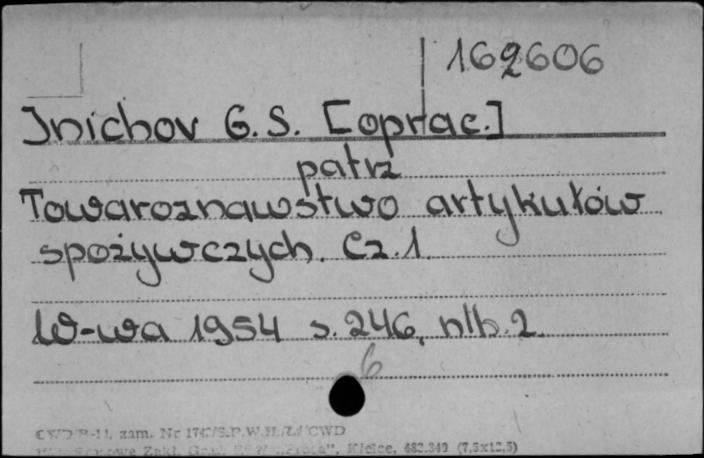 162606
Jnichov G. S. [oprac.]
patrz
Towaroznawstwo artykułów
spożywczych. Cz. 1.
W-wa 1954 s. 246, nlb. 2.
6
zam. Nr
Kielce, 482.340 (7,5x12,5)